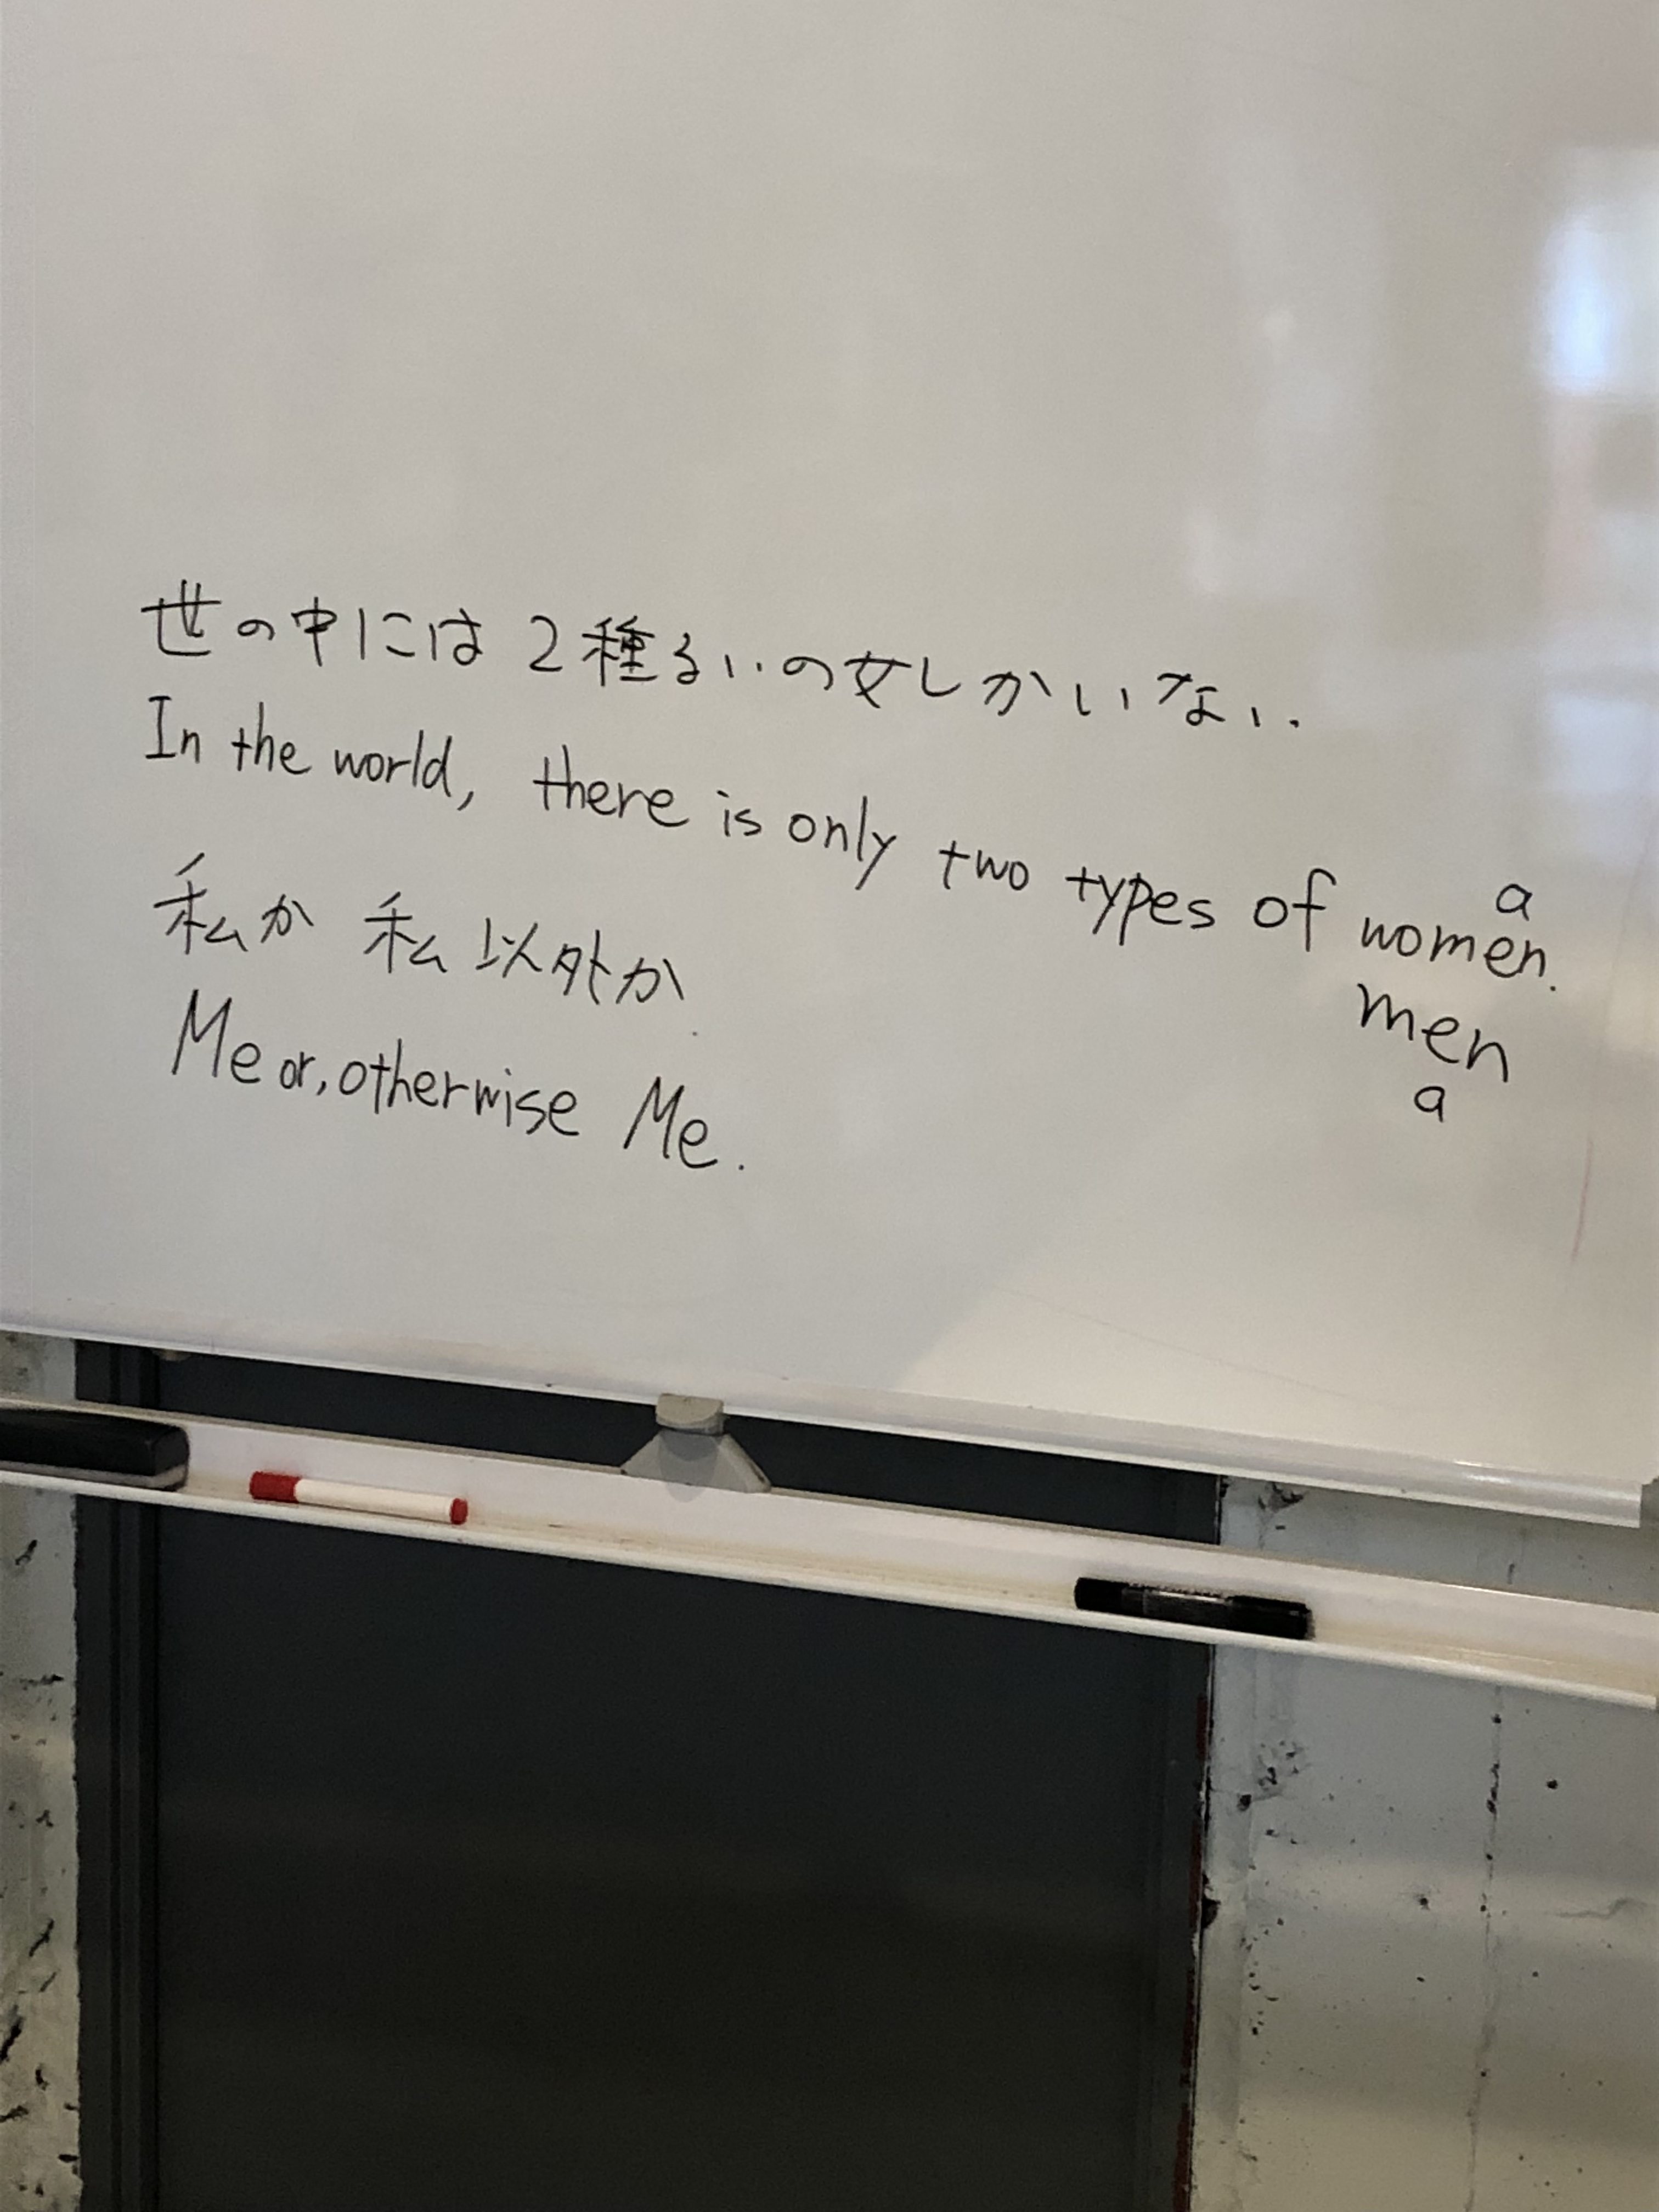 世の中には2種るいの女しかいない.
In the world, there is only two types of women.
a
men
a
私か 私以外か.
Me or, otherwise Me.